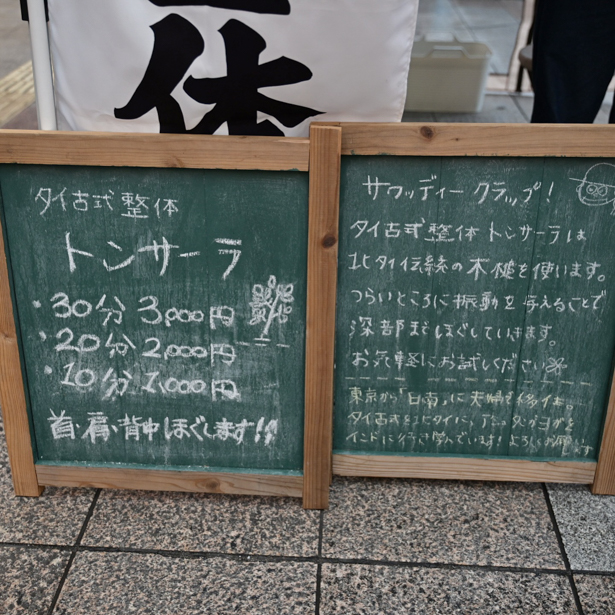 休
タイ古式整体
トンサーラ
・30分 3,000円
・20分 2,000円
・10分 1,000円
首・肩・背中ほぐします!!
サワッディークラップ!
タイ古式整体トンサーラは
北タイ伝統の木槌を使います。
つらいところに振動を与えることで
深部までほぐしていきます。
お気軽にお試しください
東京から「日南」に夫婦で移住。
タイ古式を北タイに、アシュタンガヨガを
インドに行き学んでいます!よろしくお願いします